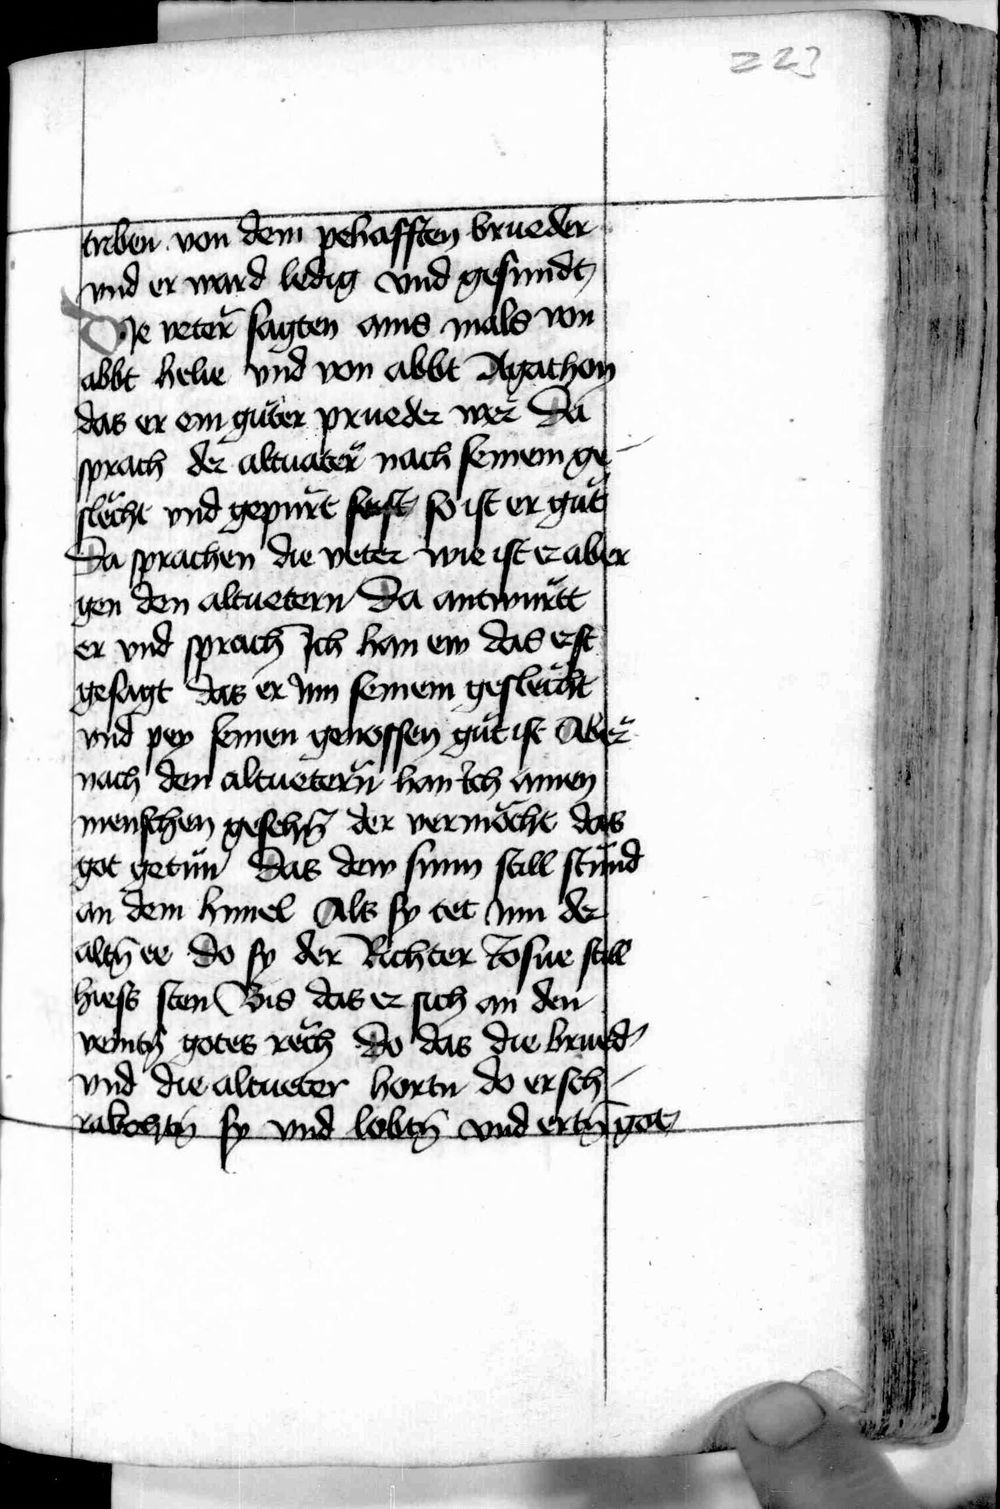 223
triben von dem pehafften brueder
vnd er ward ledig vnd gesundt
Die veter sagten ains mals von
abbt helie vnd von abbt Agathon
das er ein guter prueder wer Da
sprach der altuater nach seinem ge-
slächt vnd gepurt so ist er gůt
Da sprachen die veter wie ist er aber
gen den altuetern Da antwurtt
er vnd sprach Ich han ew das erst
gesagt das er Inn seinem geslächt
vnd pey seinen genossen gůt ist Aber
nach den altuetern han ich ainen
menschen gesehn̄ der vermöcht das
got getůn Das dew sunn still stůnd
an dem himel Als sy tet Inn der
altn̄ ee do sy der Richter Josue still
hiess sten Bis das er sich an den
veintn̄ gotes rech Do das die brued
vnd die altueter hortn do ersch-
rakchtn̄ sy vnd lobtn̄ vnd ertn̄ got